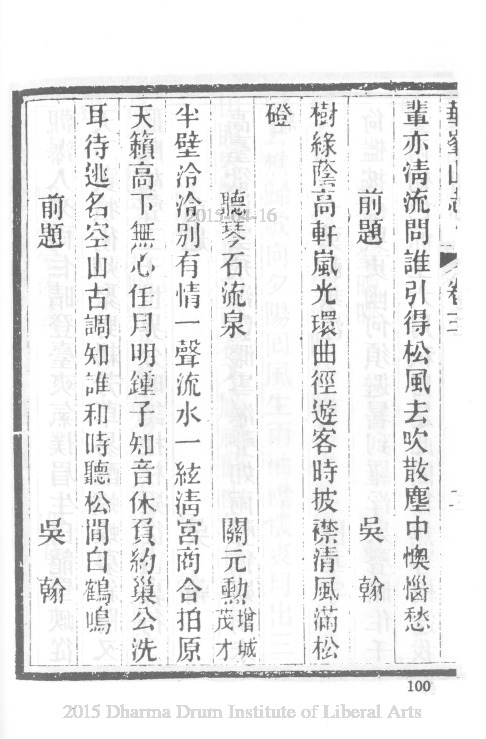 華峯山志
卷三
輩亦清流問誰引得松風去吹散塵中懊惱愁
前題 吳翰
樹綠蔭高軒嵐光環曲徑遊客時披襟清風滿松
磴
聽琴石流泉 關元勳增城茂才
半壁泠泠別有情一聲流水一絃淸宮商合拍原
天籟高下無心任月明鍾子知音休負約巢公洗
耳待逃名空山古調知誰和時聽松間白鶴鳴
前題 吳翰
2015-04-16
100
2015 Dharma Drum Institute of Liberal Arts